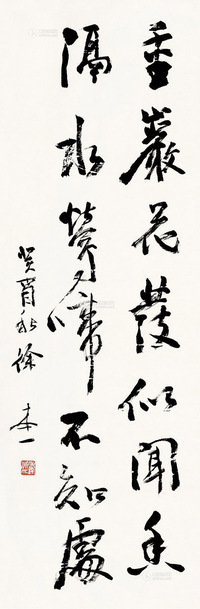 重巖花發似聞香
隔水鶯啼不知處
癸酉秋 徐本一